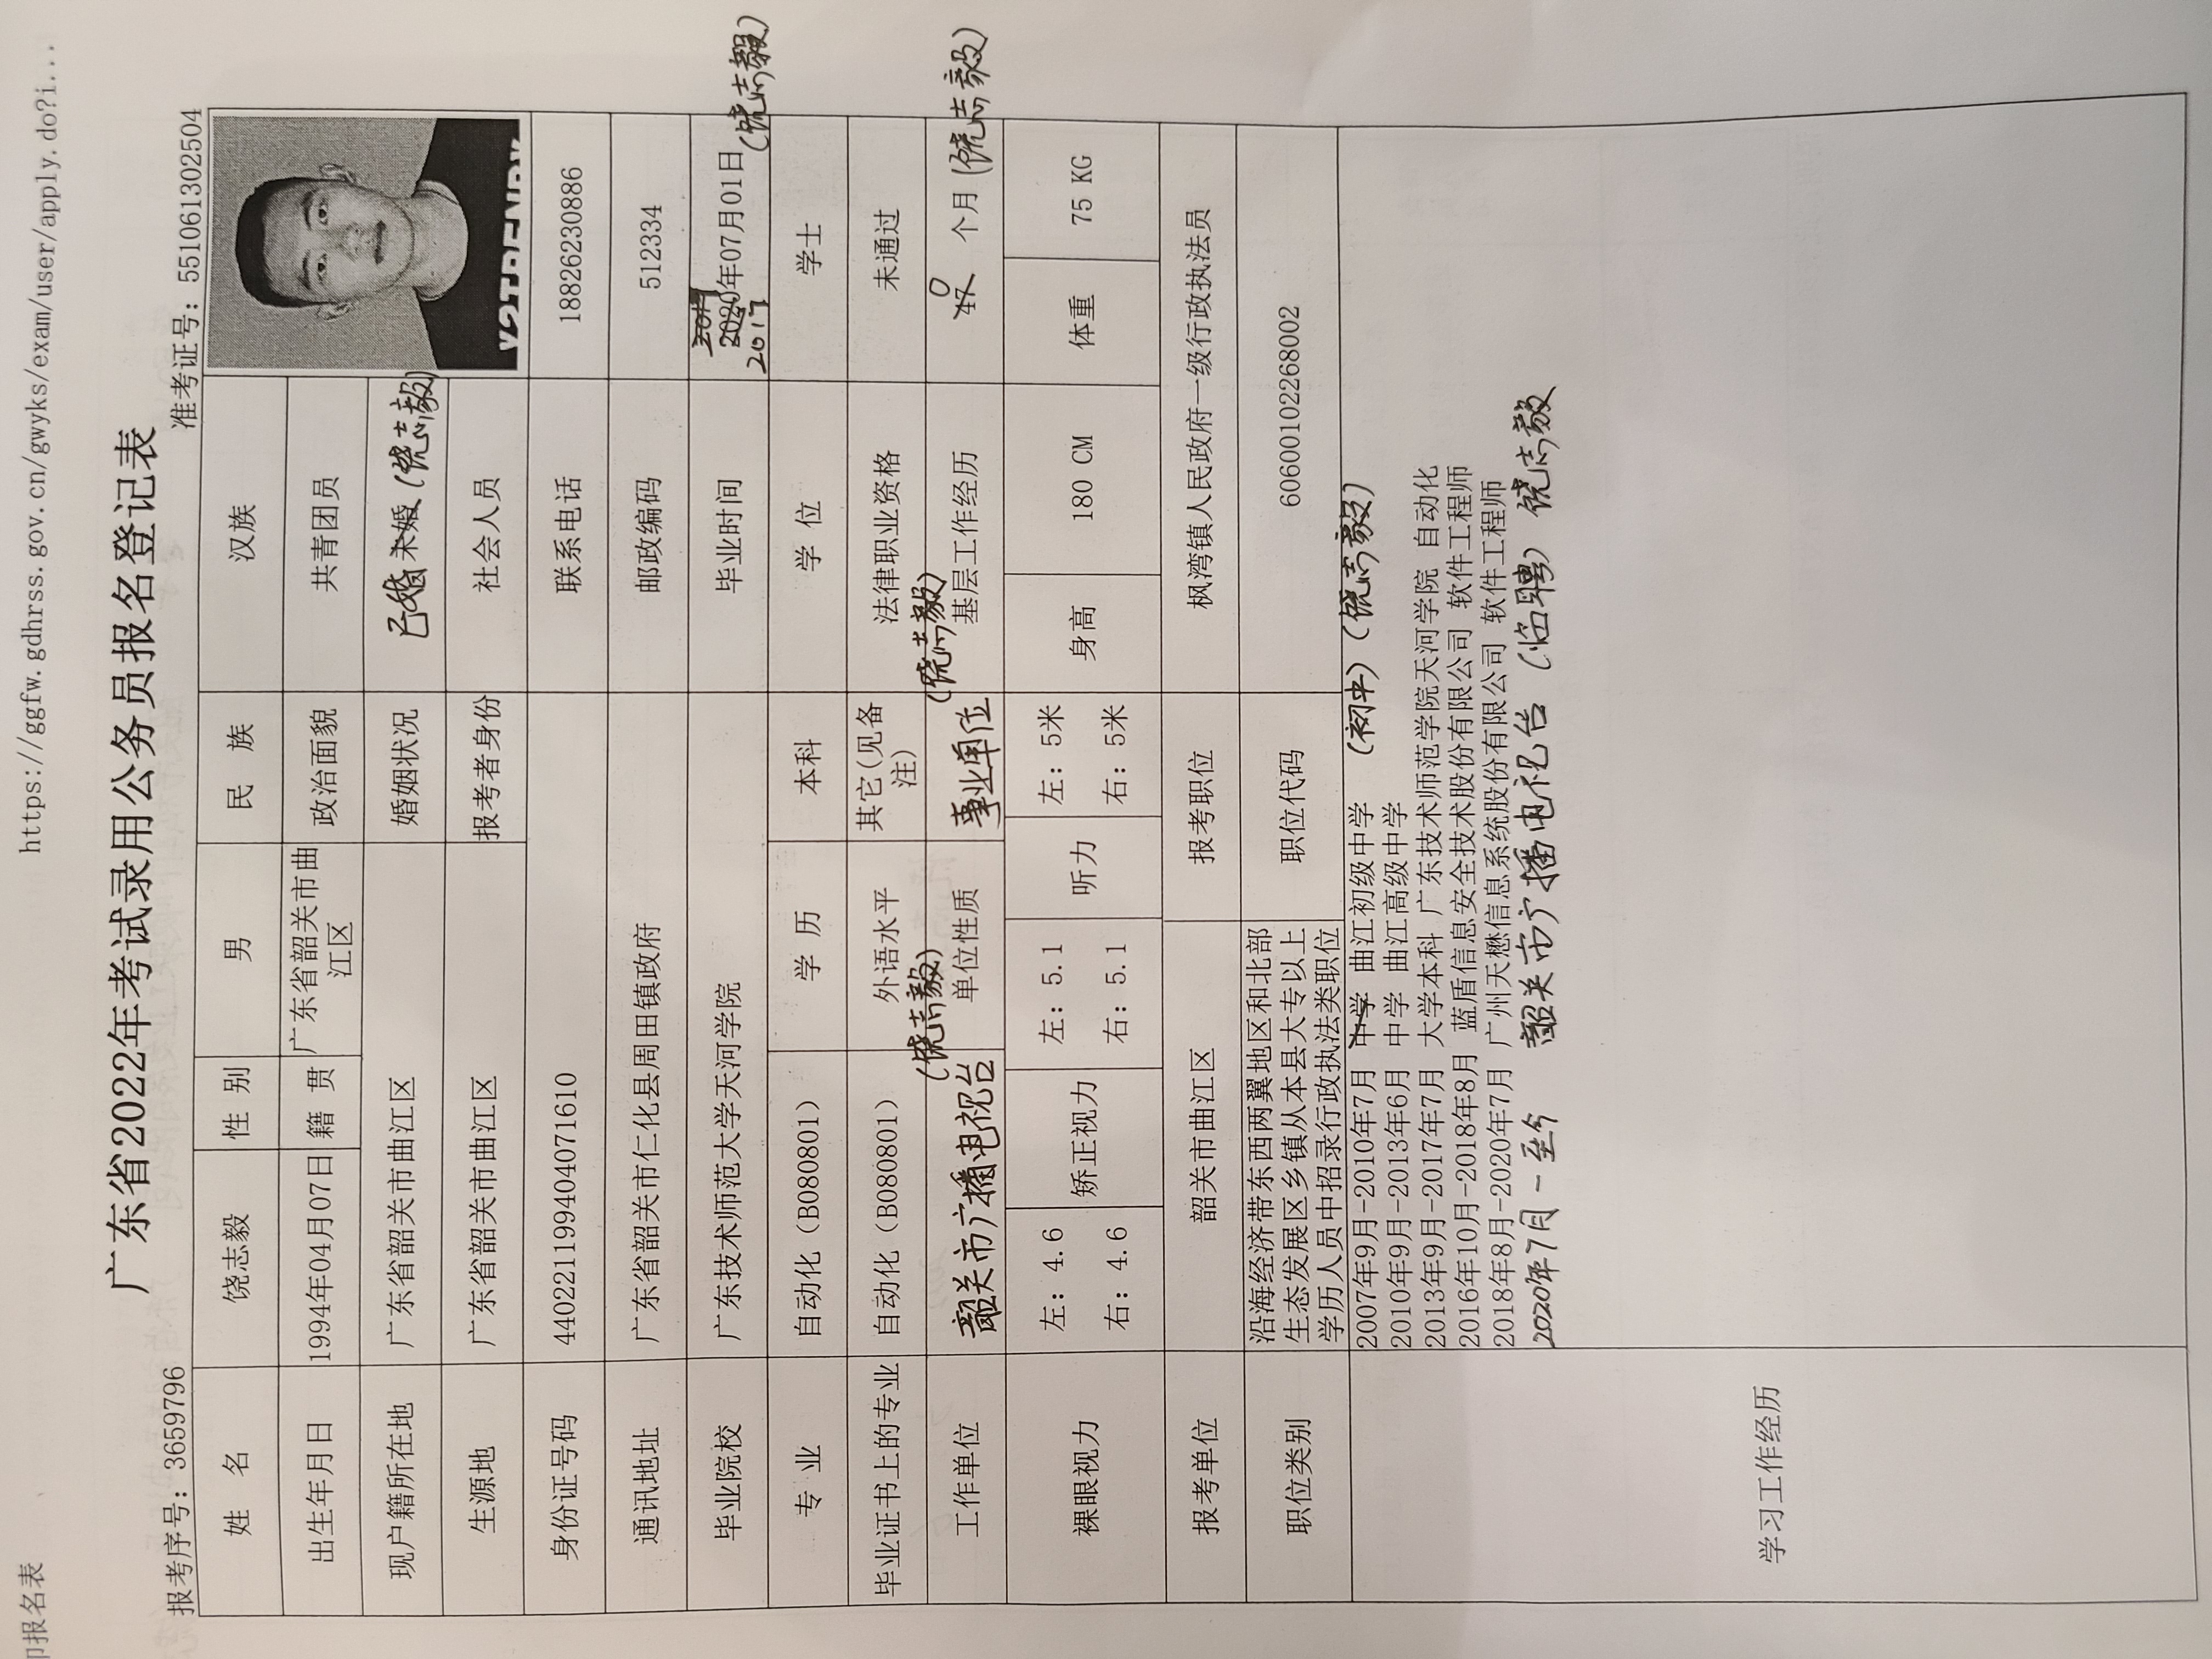 印报名表
https://ggfw.gdhrss.gov.cn/gwyks/exam/user/apply.do?i...
广东省2022年考试录用公务员报名登记表
报考序号：3659796
准考证号：551061302504
姓 名 饶志毅 性 别 男 民 族 汉族
出生年月日 1994年04月07日 籍 贯 广东省韶关市曲江区 政治面貌 共青团员
现户籍所在地 广东省韶关市曲江区 婚姻状况 已婚 未婚 (饶志毅)
生源地 广东省韶关市曲江区 报考者身份 社会人员
身份证号码 440221199404071610 联系电话 18826230886
通讯地址 广东省韶关市仁化县周田镇政府 邮政编码 512334
2017
毕业院校 广东技术师范大学天河学院 毕业时间 2020年07月01日
2017 (饶志毅)
专 业 自动化（B080801） 学 历 本科 学 位 学士
毕业证书上的专业 自动化（B080801） 外语水平 其它(见备注) 法律职业资格 未通过
(饶志毅) (饶志毅) 0
工作单位 韶关市广播电视台 单位性质 事业单位 基层工作经历 47 个月 (饶志毅)
裸眼视力 左：4.6 矫正视力 左：5.1 听力 左：5米 身高 180 CM 体重 75 KG
右：4.6 右：5.1 右：5米
报考单位 韶关市曲江区 报考职位 枫湾镇人民政府一级行政执法员
沿海经济带东西两翼地区和北部
职位类别 生态发展区乡镇从本县大专以上 职位代码 60600102268002
学历人员中招录行政执法类职位
2007年9月-2010年7月 中学 曲江初级中学 (初中) (饶志毅)
2010年9月-2013年6月 中学 曲江高级中学
2013年9月-2017年7月 大学本科 广东技术师范学院天河学院 自动化
2016年10月-2018年8月 蓝盾信息安全技术股份有限公司 软件工程师
2018年8月-2020年7月 广州天懋信息系统股份有限公司 软件工程师
2020年7月-至今 韶关市广播电视台 (临聘) 饶志毅
学习工作经历